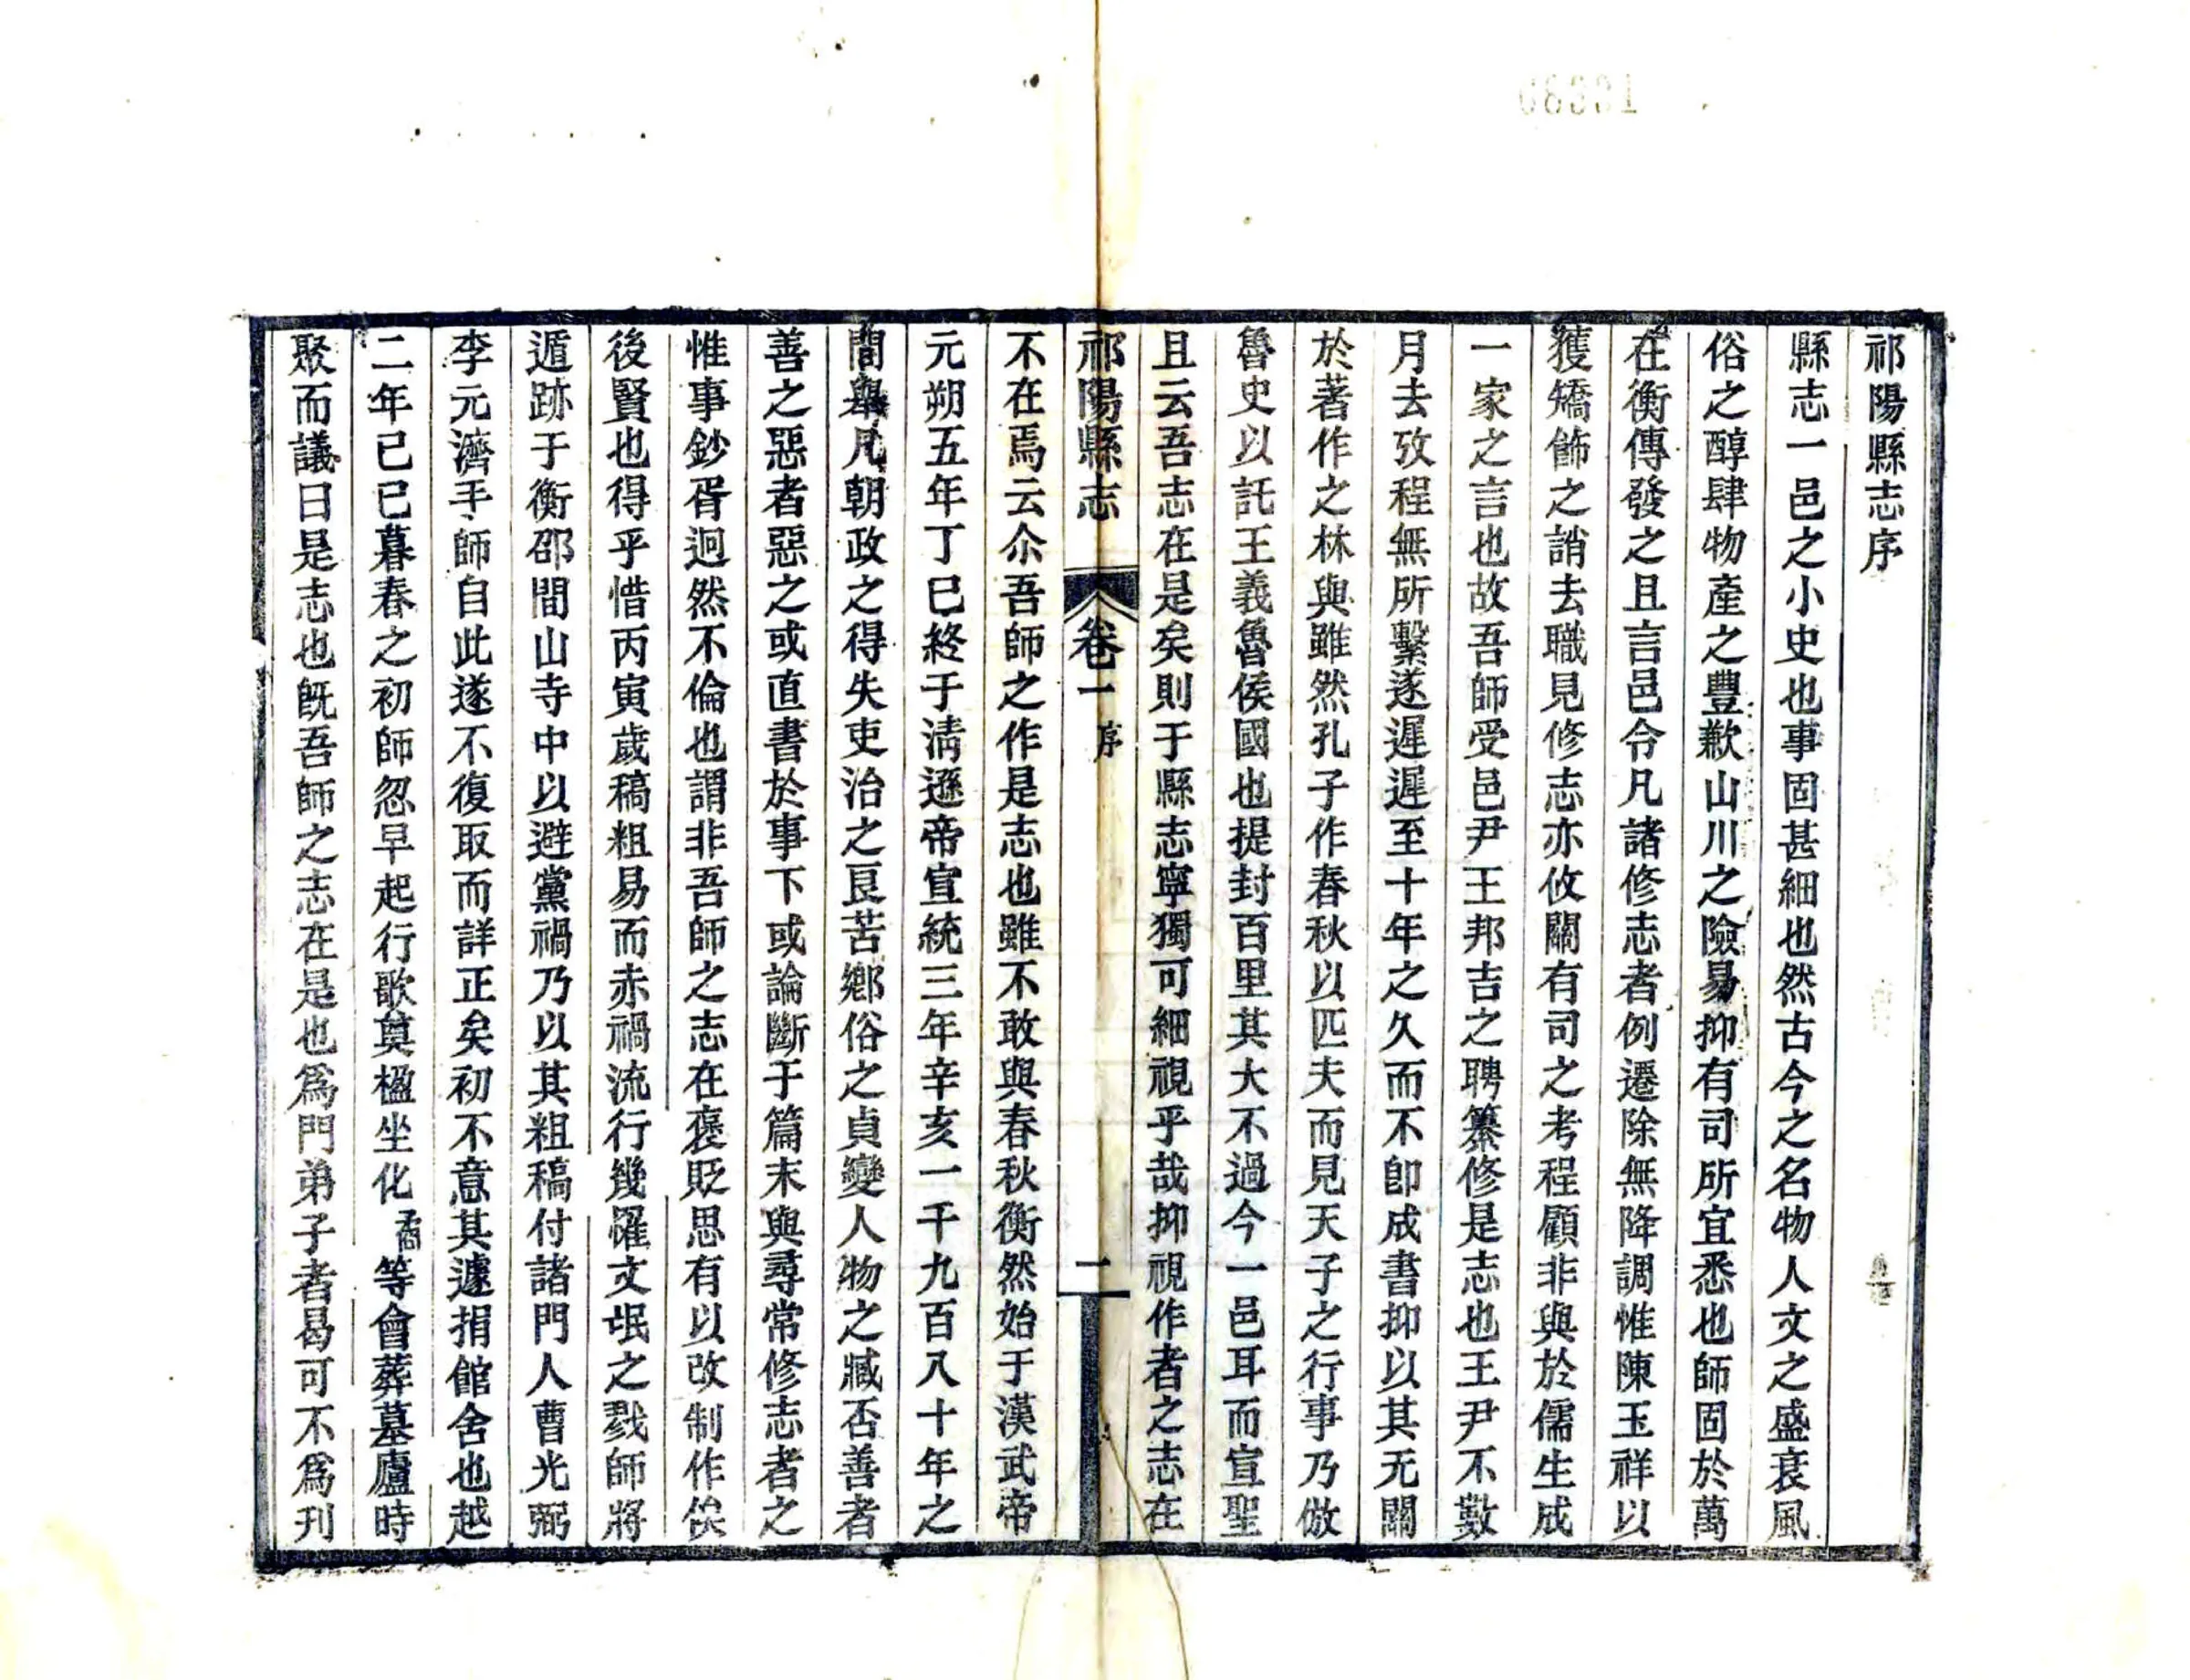 祁陽縣志序
縣志一邑之小史也事固甚細也然古今之名物人文之盛衰風
俗之醇肆物產之豐歉山川之險易抑有司所宜悉也師固於萬
在衡傳發之且言邑令凡諸修志者例遷除無降調惟陳玉祥以
獲矯飾之誚去職見修志亦攸關有司之考程顧非與於儒生成
一家之言也故吾師受邑尹王邦吉之聘纂修是志也王尹不數
月去攷程無所繫遂遲遲至十年之久而不卽成書抑以其无關
於著作之林與雖然孔子作春秋以匹夫而見天子之行事乃倣
魯史以託王義魯侯國也提封百里其大不過今一邑耳而宣聖
且云吾志在是矣則于縣志寧獨可細視乎哉抑視作者之志在
祁陽縣志 卷一 序 一
不在焉云尒吾師之作是志也雖不敢與春秋衡然始于漢武帝
元朔五年丁巳終于淸遜帝宣統三年辛亥一千九百八十年之
間舉凡朝政之得失吏治之良苦鄉俗之貞變人物之臧否善者
善之惡者惡之或直書於事下或論斷于篇末與尋常修志者之
惟事鈔胥迥然不倫也謂非吾師之志在褒貶思有以改制作俟
後賢也得乎惜丙寅歲稿粗易而赤禍流行幾罹文氓之戮師將
遁跡于衡邵間山寺中以避黨禍乃以其粗稿付諸門人曹光弼
李元濟手師自此遂不復取而詳正矣初不意其遽捐館舍也越
二年已巳暮春之初師忽早起行歌奠楹坐化 等會葬墓廬時
聚而議曰是志也旣吾師之志在是也爲門弟子者曷可不爲刋